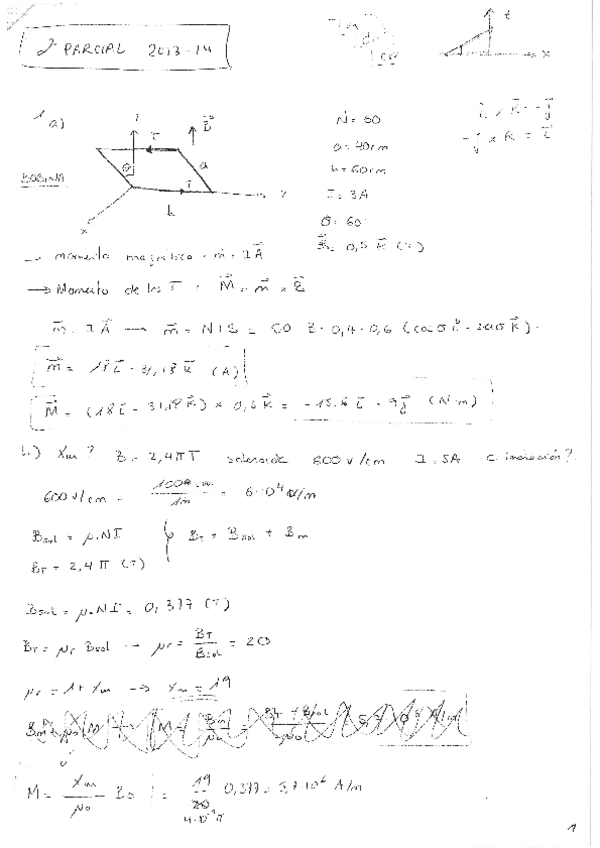 2º PARCIAL 2013-14
t
x
1 a)
BOBINA
I
B⃗
θ
a
I
b
y
x
N = 50
a = 40cm
b = 60cm
I = 3A
θ = 60º
B⃗ = 0,5 k⃗ (T)
i⃗ × k⃗ = -j⃗
-j⃗ × k⃗ = i⃗
→ momento magnético = m⃗ = I A⃗
→ Momento de las F = M⃗ = m⃗ × B⃗
m⃗ = I A⃗ → m⃗ = N I S = 50 · 3 · 0,4 · 0,6 (cosθ i⃗ - senθ k⃗) =
m⃗ = 18 i⃗ - 31,18 k⃗ (A)
M⃗ = (18 i⃗ - 31,18 k⃗) × 0,5 k⃗ = -15.6 i⃗ - 9 j⃗ (N·m)
b) Xm? B = 2,4πT solenoide 600 v/cm I = 5A c. imanación?
600 v/cm = 100cm / 1m = 6·10⁴ v/m
Bsol = μ₀NI
BT = Bsol + Bm
BT = 2,4 π (T)
Bsol = μ₀NI = 0,377 (T)
BT = μr Bsol → μr = BT / Bsol = 20
μr = 1 + Xm → Xm = 19
M = Xm / μ₀ B₀ = 19 / 4·10⁻⁷π 0,377 = 5,7·10⁶ A/m
1